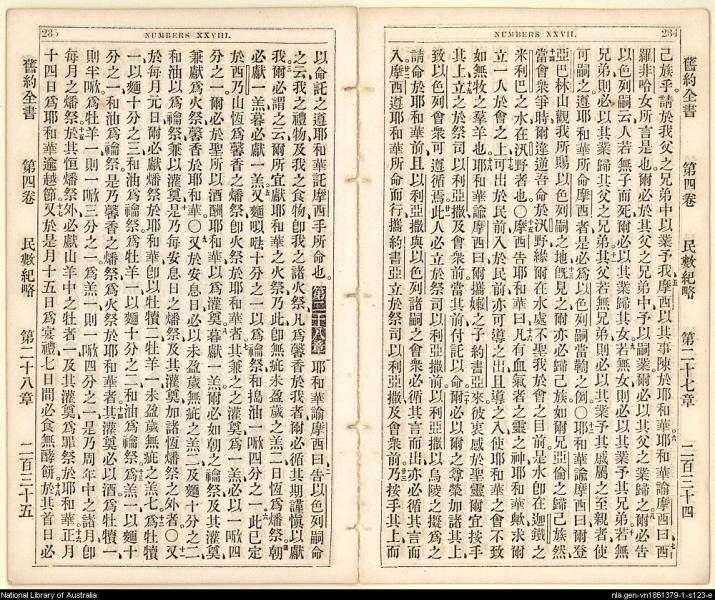 NUMBERS XXVII.
234
舊約全書 第四卷 民數紀略 第二十七章 二百三十四
己族乎請於我父之兄弟中以業予我摩西以其事陳於耶和華耶和華諭摩西曰西
羅非哈女所言是也爾必於其父之兄弟中予以嗣業爾必以其父之業歸之爾必告
以色列嗣云人若無子而死爾必以其業歸其女若無女則必以其業予其兄弟若無
兄弟則必以其業歸其父之兄弟其父若無兄弟則必以其業予其戚屬之至親者使
可嗣之遵耶和華所命摩西者是必爲以色列嗣當鞫之例〇耶和華諭摩西曰爾登
亞巴林山觀我所賜以色列嗣之地旣見之爾亦必歸己族如爾兄亞倫之歸己族然
當會衆爭時爾違逆吾命於汛野緣爾在水處不聖我於會之目前是水卽在迦鐵之
米利巴之水在汛野者也〇摩西告耶和華曰凡有血氣者之靈之神耶和華歟求爾
立一人於會之上可出於民前入於民前亦可導之出且導之入使耶和華之會不致
如無牧之羣羊也耶和華諭摩西曰爾攜嫩之子約書亞來彼衷感於聖靈爾宜按手
其上立之於祭司以利亞撒及會衆前當其前付託以命爾必以爾之尊榮加其上
致以色列會衆可遵循焉此人必立於祭司以利亞撒前以利亞撒以烏陵之擬爲之
請命於耶和華前且以利亞撒與以色列諸嗣之會衆必循其言而出亦必循其言而
入摩西遵耶和華所命而行攜約書亞立於祭司以利亞撒及會衆前乃按手其上而
235
NUMBERS XXVIII.
以命託之遵耶和華託摩西手所命也 第二十八章 耶和華諭摩西曰告以色列嗣命
之云我之禮物及我之食物卽我之諸火祭凡爲馨香於我者爾必循其期謹愼以獻
我爾必謂之云爾所宜獻耶和華之火祭乃此卽無疵未盈歲之羔二日恆爲燔祭朝
必獻一羔暮必獻一羔又麵㕧𠺘十分之一以爲禴祭和搗油一㘎四分之一此已定
於西乃山恆爲馨香之燔祭卽火祭於耶和華者其兼之之灌奠爲一羔必以一㘎四
分之一爾必於聖所以酒酹耶和華以爲灌奠暮獻一羔爾必如朝之禴祭及其灌奠
兼獻以爲火祭馨香於耶和華〇又於安息日必以未盈歲無疵之羔二及麵十分之二
和油以爲禴祭兼以灌奠是乃每安息日之燔祭及其灌奠加諸恆燔祭之外者〇又
於每月元日爾必獻燔祭於耶和華卽以牡犢二牡羊一未盈歲無疵之羔七爲牡犢
一以麵十分之三和油爲禴祭爲牡羊一以麵十分之二和油爲禴祭爲羔一以麵十
分之一和油爲禴祭是乃馨香之燔祭爲火祭於耶和華者其灌奠必以酒爲牡犢一
則半㘎爲牡羊一則一㘎三分之一爲羔一則一㘎四分之一是乃周年中之諸月卽
每月之燔祭於其恆燔祭外必獻山羊中之牡者一及其灌奠爲罪祭於耶和華正月
十四日爲耶和華逾越節又於是月十五日爲宴禮七日間必食無酵餅於其首日必
舊約全書 第四卷 民數紀略 第二十八章 二百三十五
National Library of Australia
nla.gen-vn1861379-1-s123-e